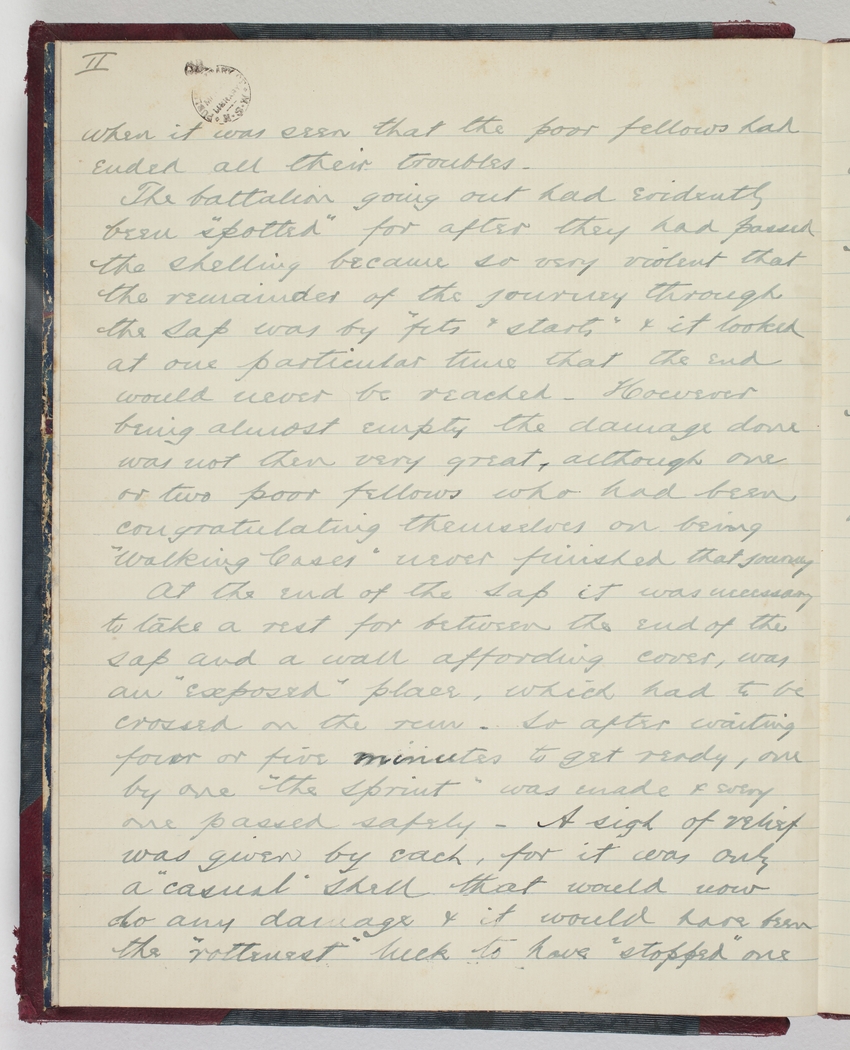 II
when it was seen that the poor fellows had
ended all their troubles.
The battalion going out had evidently
been "spotted" for after they had passed
the shelling became so very violent that
the remainder of the journey through
the Sap was by "fits " starts" & it looked
at one particular time that the end
would never be reached. However
being almost empty the damage done
was not then very great, although one
or two poor fellows who had been
congratulating themselves on being
"Walking Cases" never finished that journey
At the end of the Sap it was necessary
to take a rest for between the end of the
Sap and a wall affording cover, was
an "exposed" place, which had to be
crossed on the run. So after waiting
four or five minutes to get ready, one
by one "the sprint" was made & every
one passed safely - A sigh of relief
was given by each, for it was only
a "casual" shell that would now
do any damage & it would have been
the "rottenest" luck to have "stopped" one